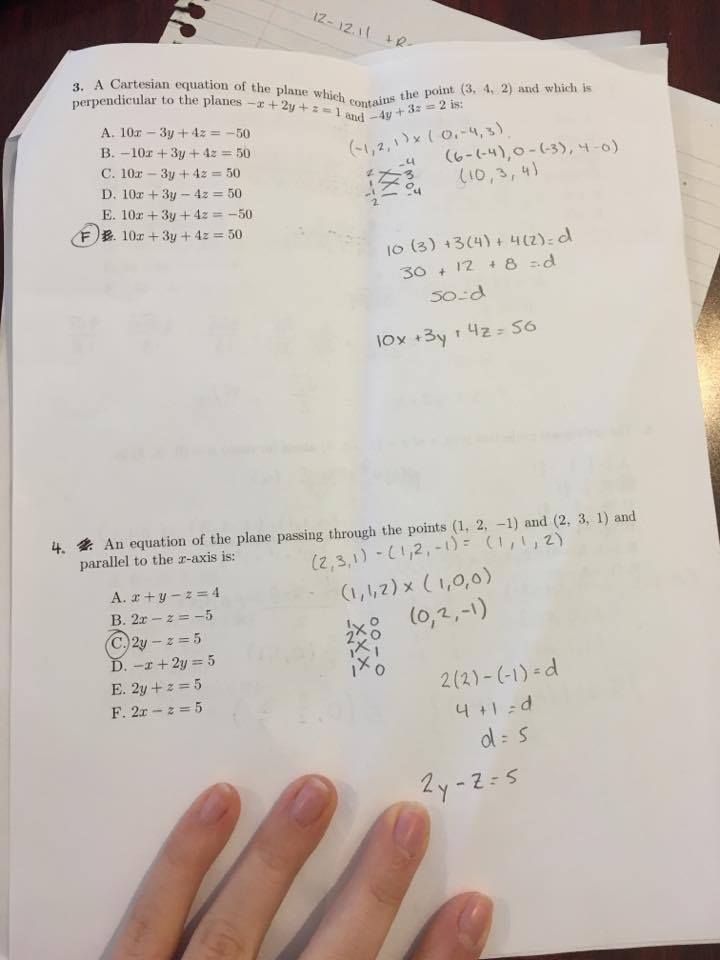 12-12.11 +
3. A Cartesian equation of the plane which contains the point (3, 4, 2) and which is
perpendicular to the planes −x + 2y + z = 1 and −4y + 3z = 2 is:
A. 10x − 3y + 4z = −50
B. −10x + 3y + 4z = 50
C. 10x − 3y + 4z = 50
D. 10x + 3y − 4z = 50
E. 10x + 3y + 4z = −50
F 10x + 3y + 4z = 50
(-1,2,1) x (0,-4,3)
(6-(-4), 0-(-3), 4-0)
(10, 3, 4)
2 -4
1 3
-1 0
2 -4
10(3) +3(4) + 4(2)=d
30 + 12 + 8 =d
50=d
10x +3y + 4z = 50
4. An equation of the plane passing through the points (1, 2, −1) and (2, 3, 1) and
parallel to the x-axis is:
(2,3,1) - (1,2,-1) = (1,1,2)
A. x + y − z = 4
B. 2x − z = −5
C. 2y − z = 5
D. −x + 2y = 5
E. 2y + z = 5
F. 2x − z = 5
(1,1,2) x (1,0,0)
(0,2,-1)
1 0
2 0
1 1
1 0
2(2) - (-1) = d
4 + 1 = d
d = 5
2y - z = 5